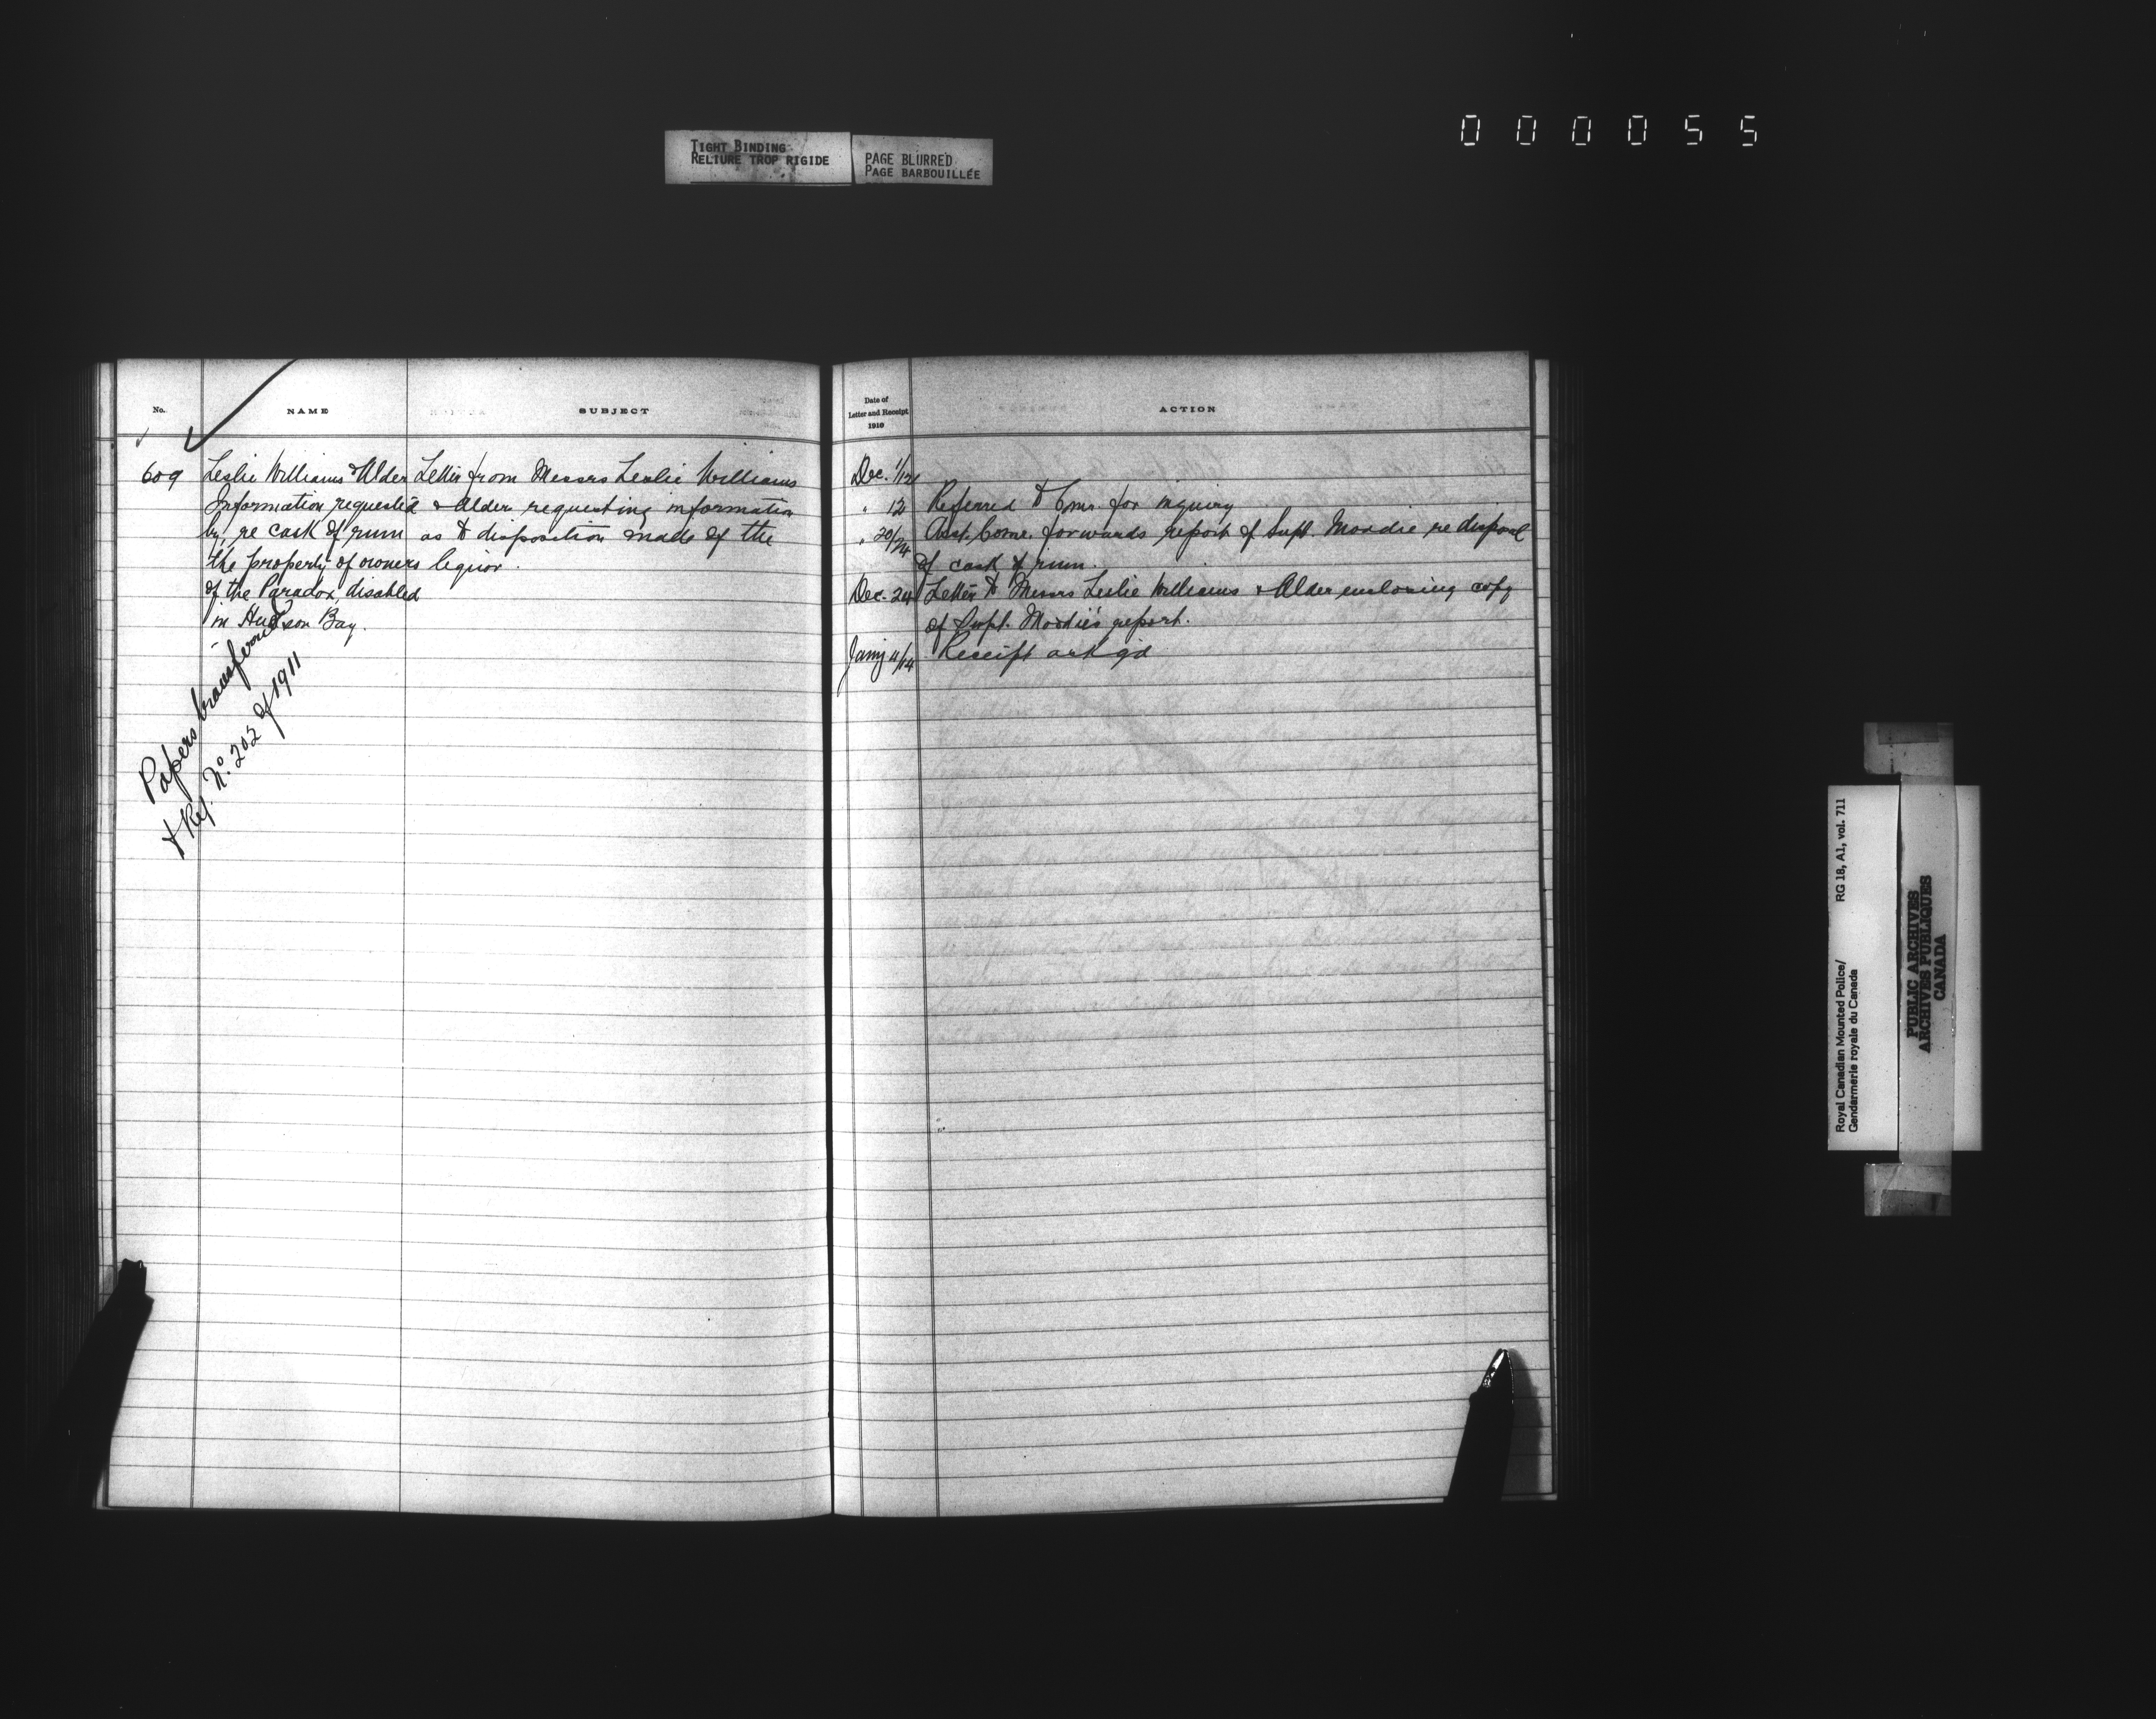 000055
TIGHT BINDING
RELIURE TROP RIGIDE
PAGE BLURRED
PAGE BARBOUILLÉE
No.
NAME
SUBJECT
609
Leslie Williams & Alder
Information requested
by, re cask of rum
the property of owners
of the Paradox, disabled
in Hudson Bay.
Letter from Messrs Leslie Williams
& Alder requesting information
as to disposition made of the
liquor.
Papers transferred
to Ref. No. 202 of 1911
Date of
Letter and Receipt
1910
ACTION
Dec. 1/12
" 12 Referred to Comr. for inquiry
" 20/24 Asst. Comr. forwards report of Supt. Moodie re disposal
of cask of rum.
Dec. 24 Letter to Messrs Leslie Williams & Alder enclosing copy
of Supt. Moodie's report.
Jany 11/14 Receipt ackgd
Royal Canadian Mounted Police/
Gendarmerie royale du Canada
RG 18, A1, vol. 711
PUBLIC ARCHIVES
ARCHIVES PUBLIQUES
CANADA